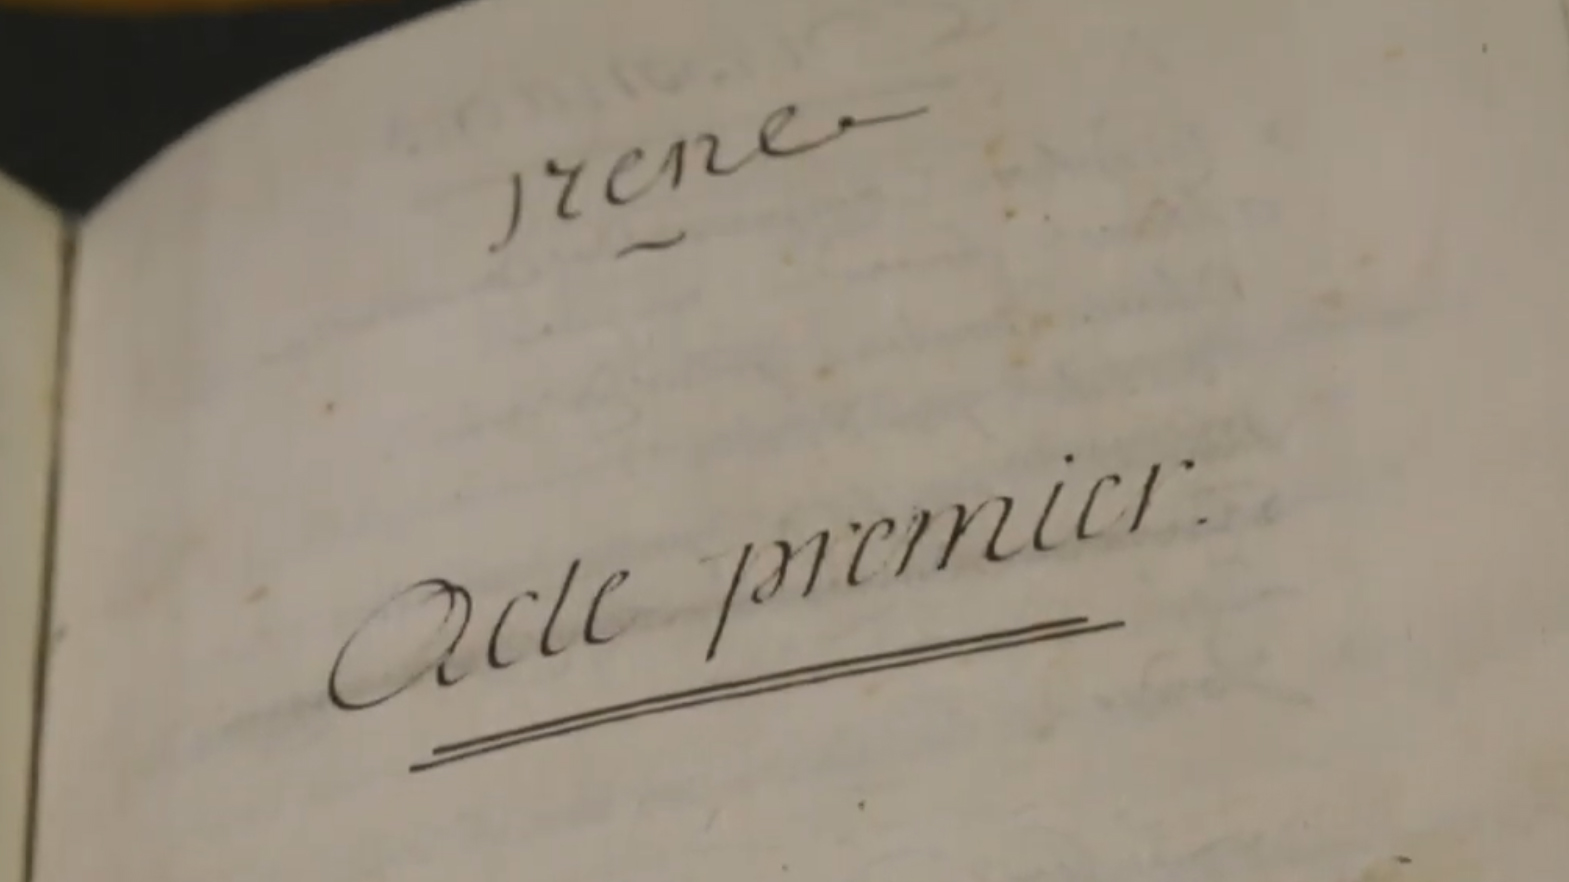 Irene
Acte premier.